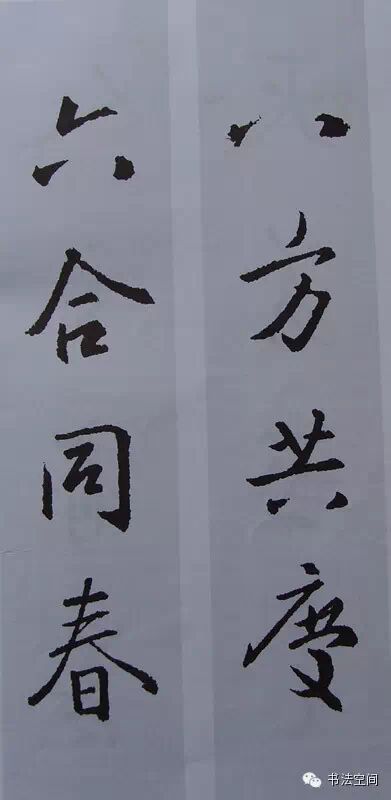 八方共慶
六合同春
书法空间